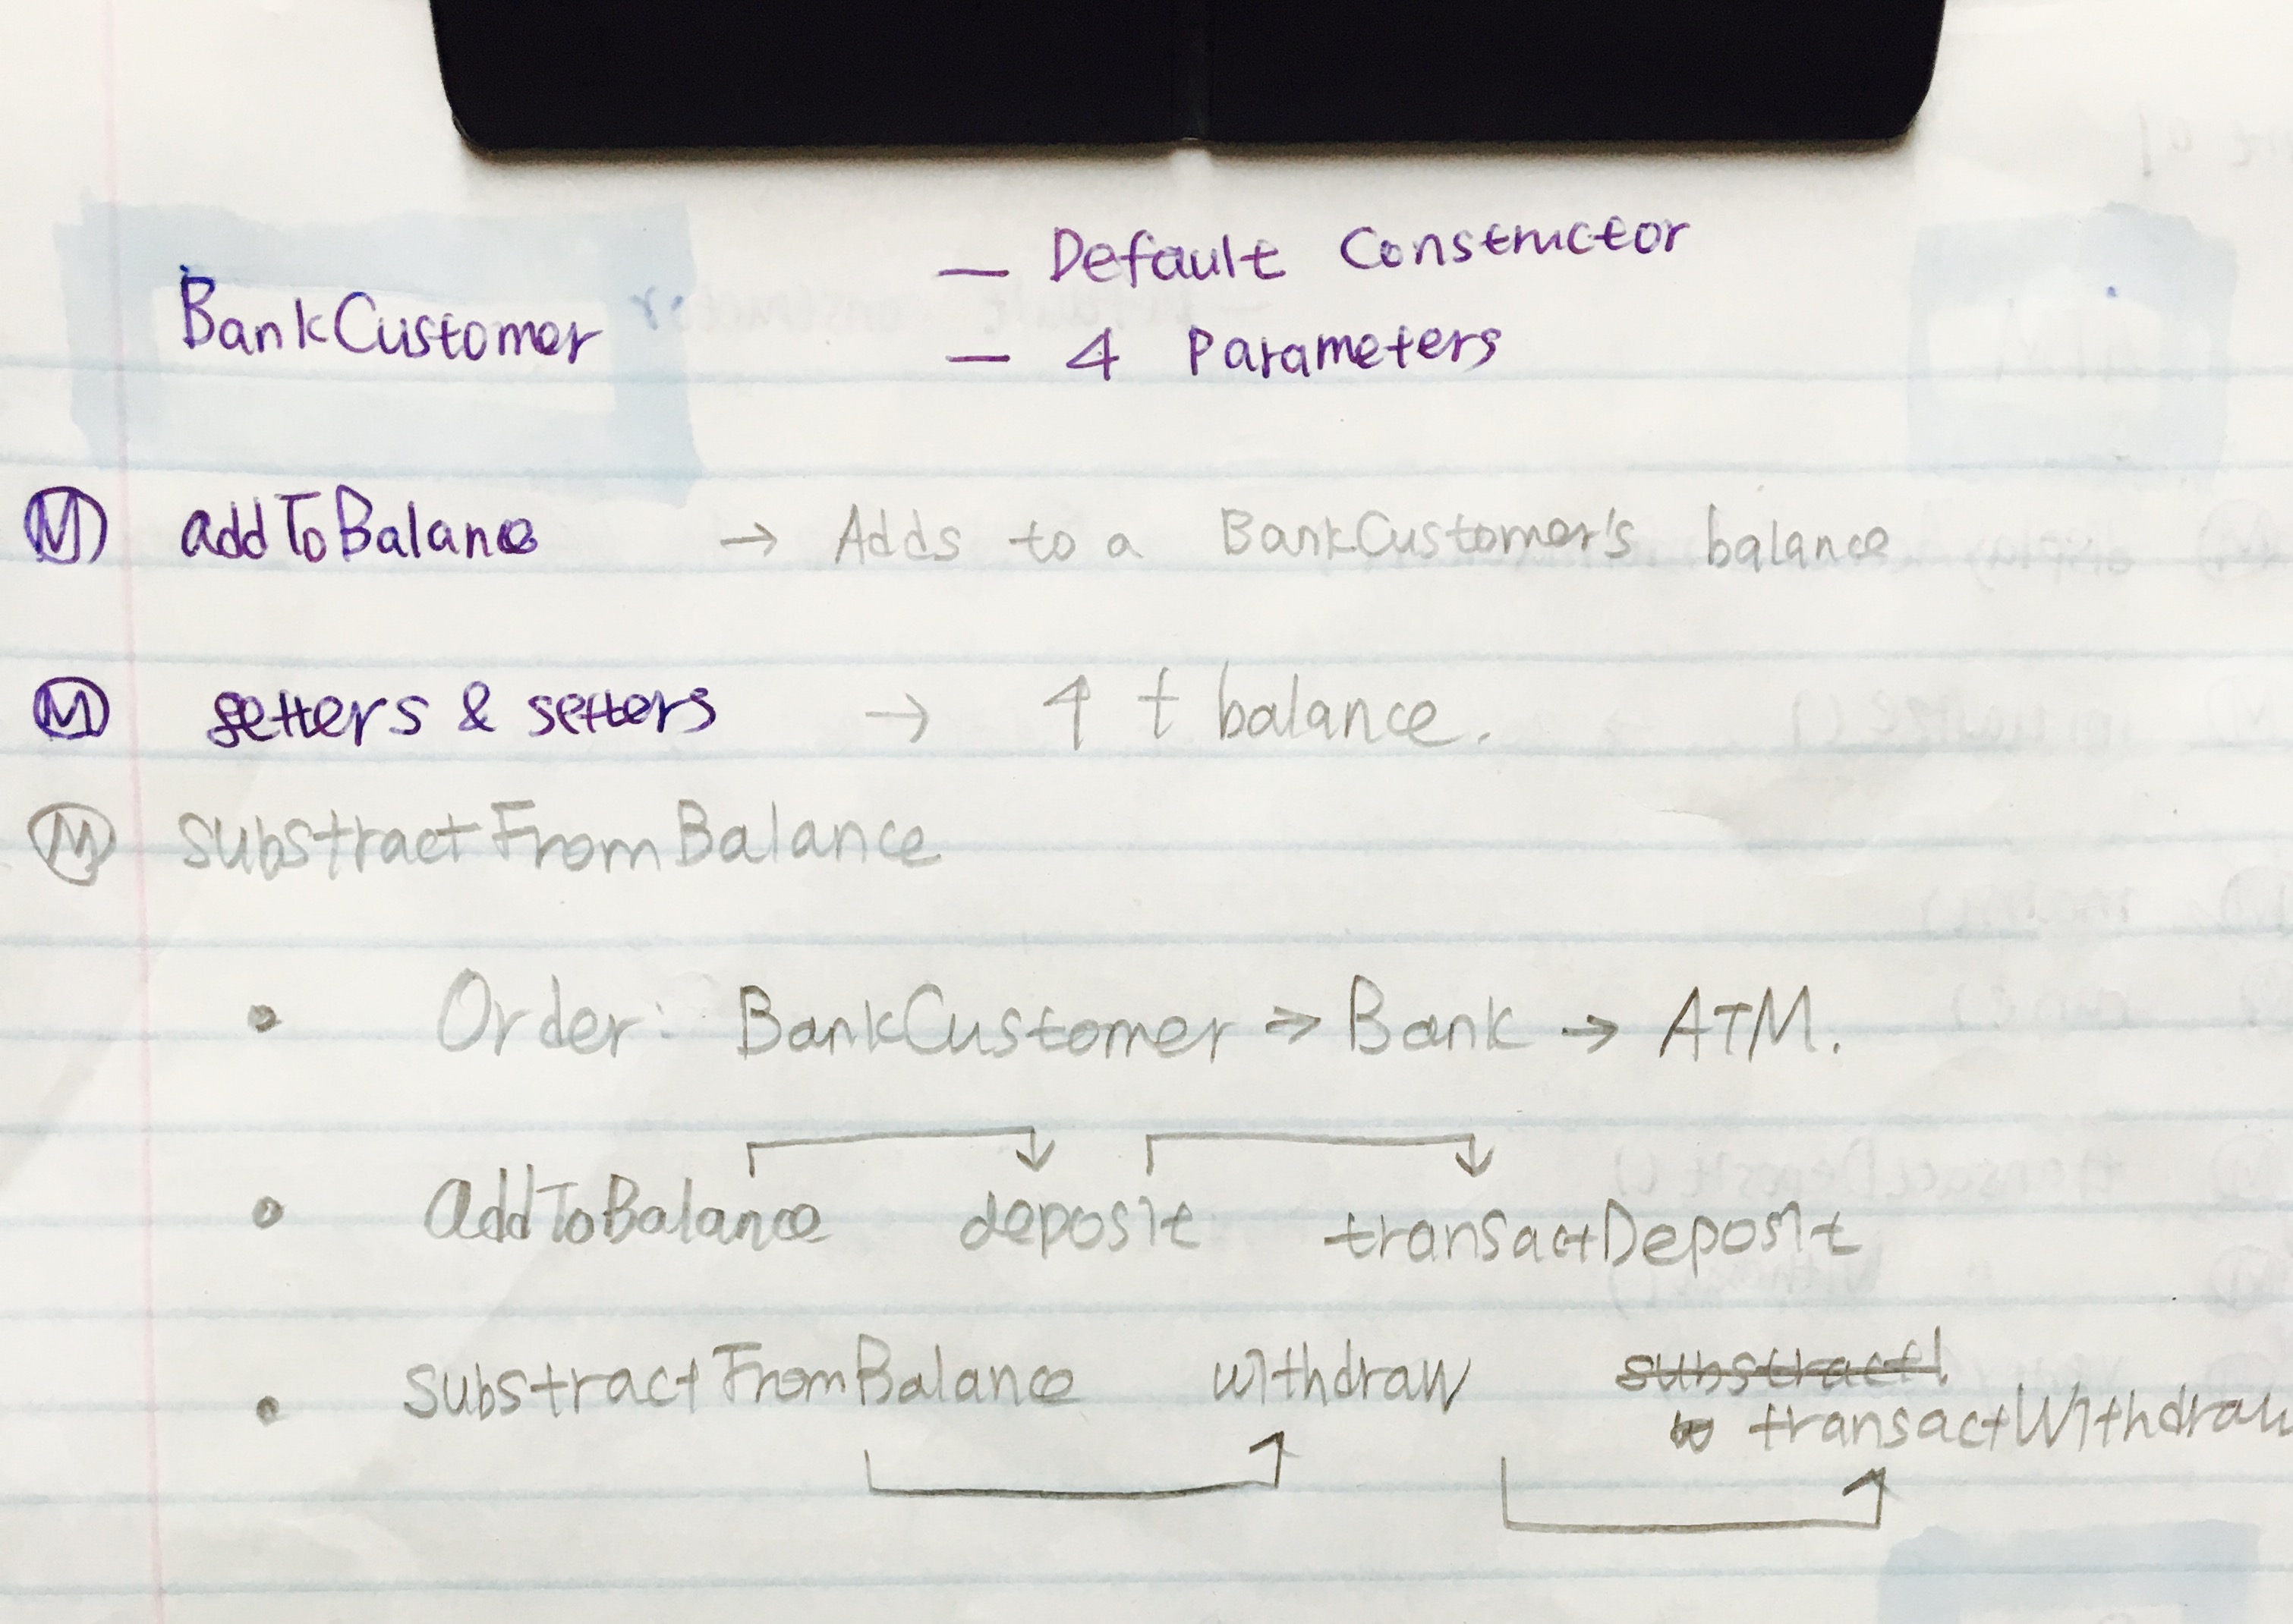 — Default Constructor
BankCustomer
— 4 Parameters
Ⓜ addToBalance → Adds to a BankCustomer's balance
Ⓜ getters & setters → 4 + balance.
Ⓜ substractFromBalance
• Order: BankCustomer → Bank → ATM.
• addToBalance deposit transactDeposit
• substractFromBalance withdraw substractl
transactWithdraw